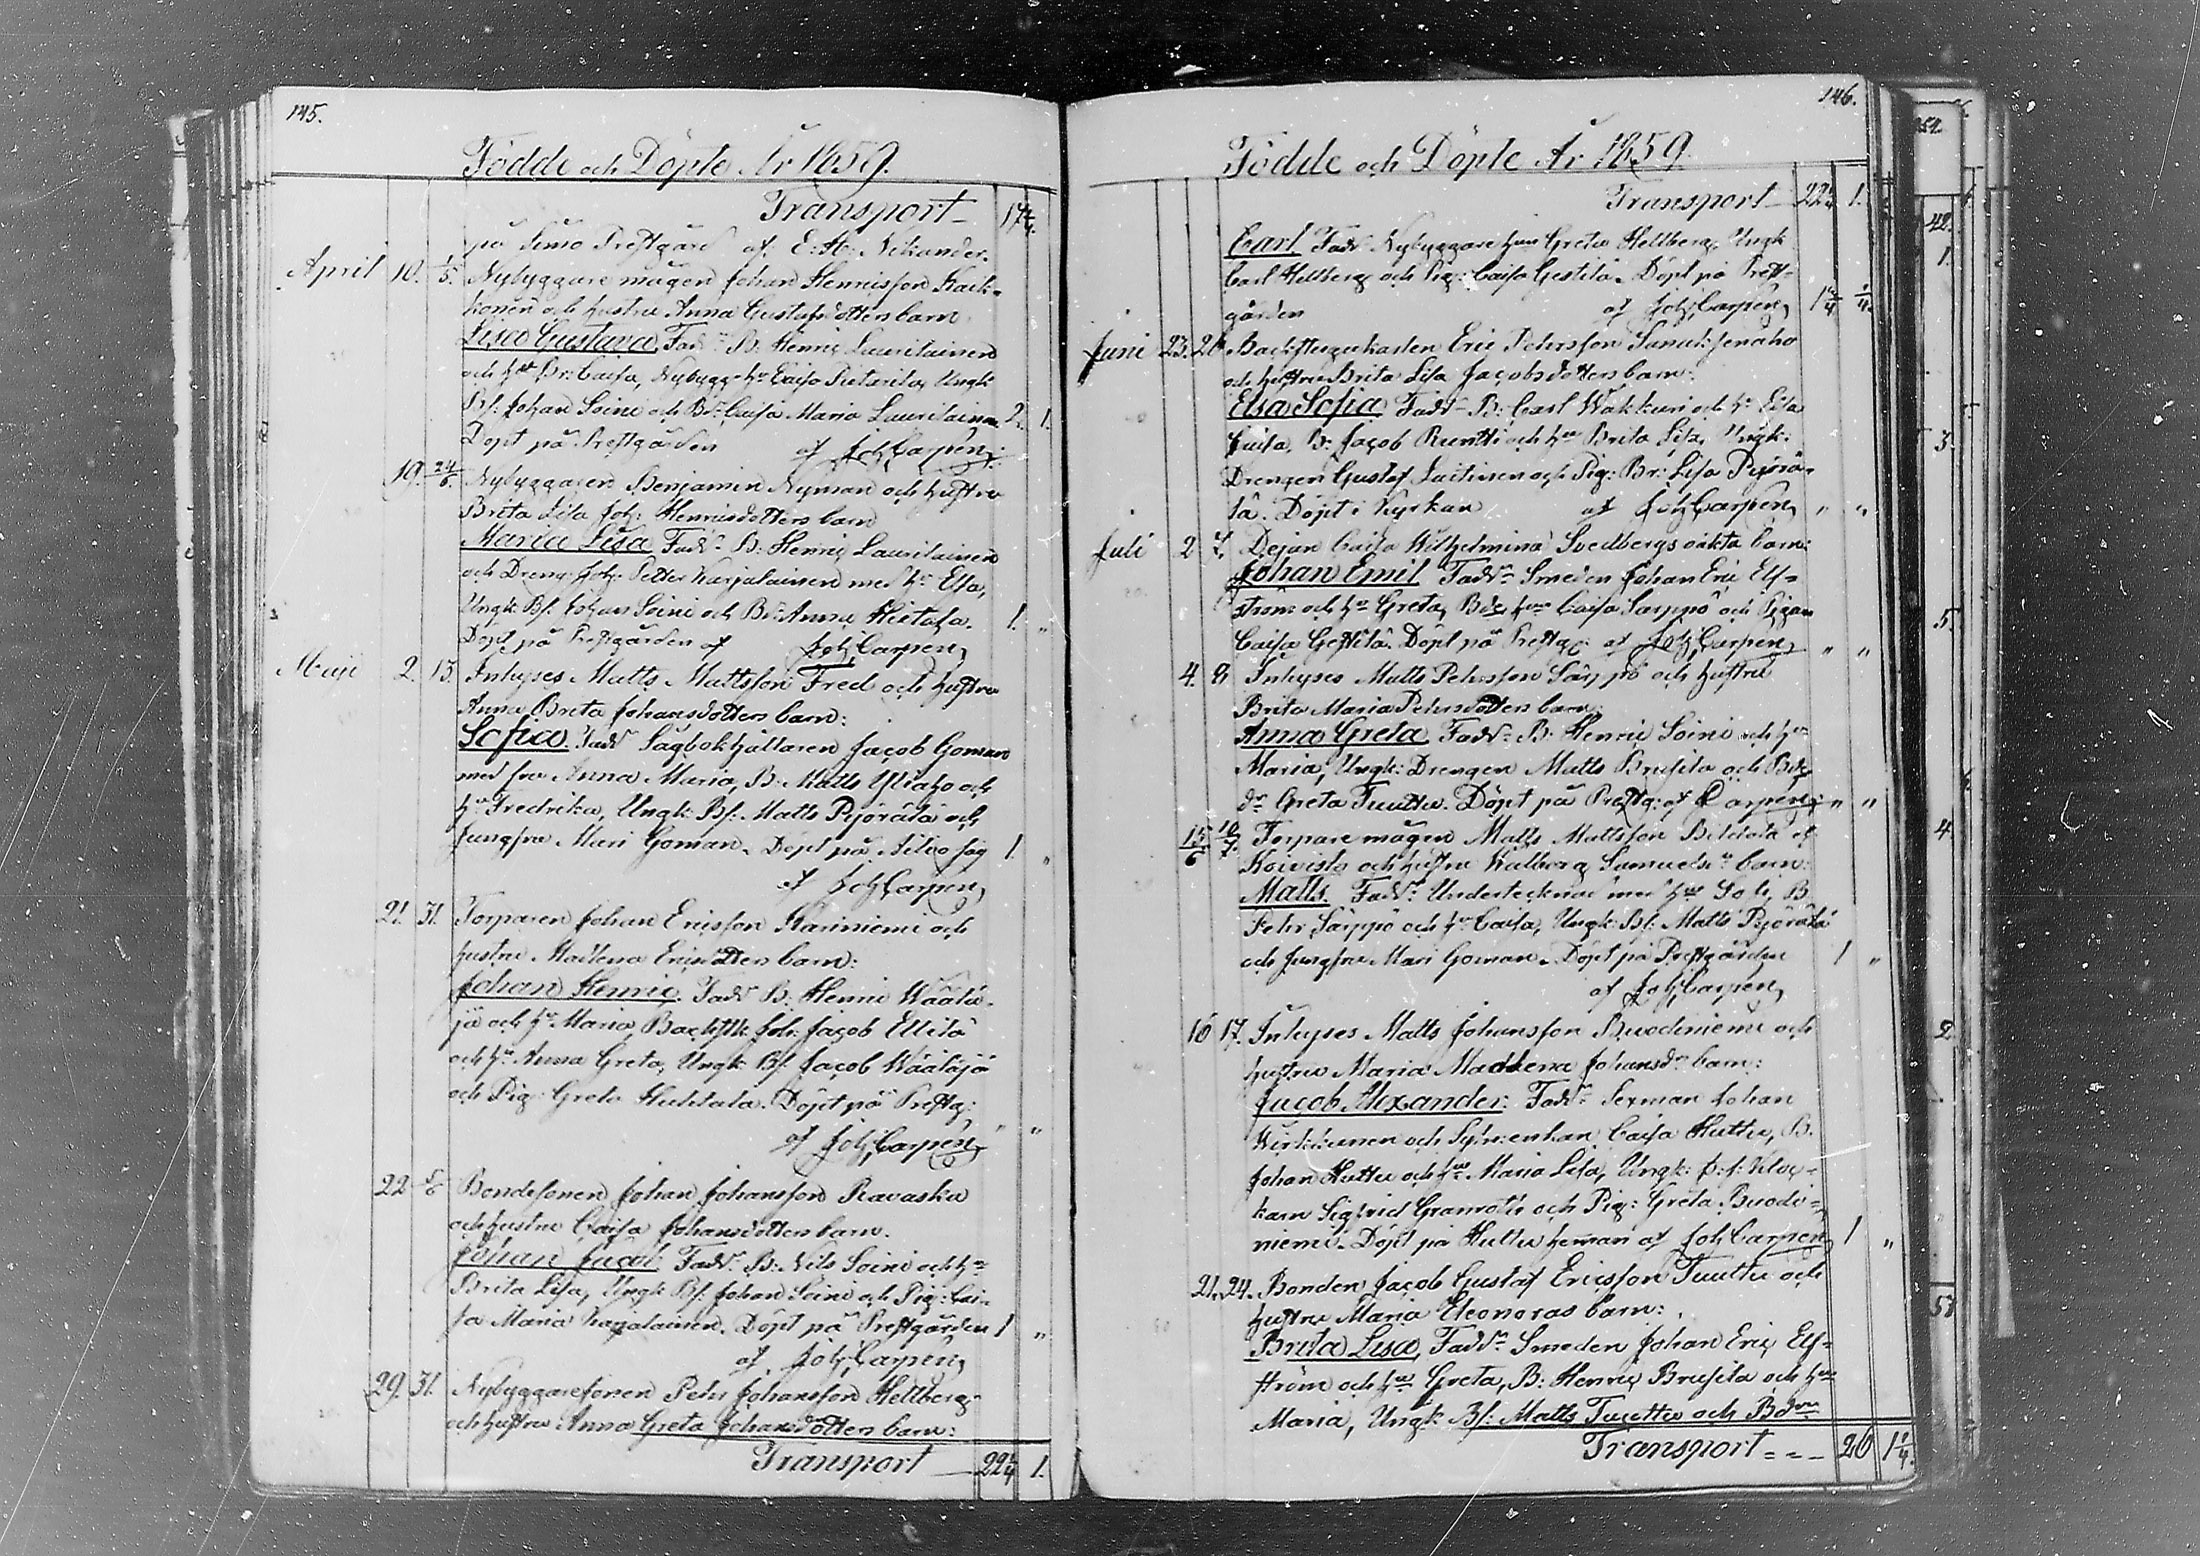 145.
Födde och Döpte År 1859.
Transport 17 3/4.
på Simo Prestgård af E: Ab: Nikander.
April 10. 1/5. Nybyggare mågen Johan Henricsson Kaik-
konen och hustru Anna Gustafsdotters barn
Lisa Gustava, Fadd: B: Henric Lauritainen
och hu Br: Caisa, Nybygg: hu Caisa Pietarila, Ungk:
Bs: Johan Soini och Bd: Caisa Maria Lauritainen 2. 1.
Döpt på Prestgården af Joh: Carpen;
19. 24/6. Nybyggaren Benjamin Nyman och hustru
Brita Lisa Joh: Henricsdotters barn
Maria Lisa Fadd: B: Henric Lauritainen
och Dreng: Joh: Petter Karjalainen med hu Elsa,
Ungk: Bs: Johan Soini och Bd: Anna Hietala. 1. "
Döpt på Prestgården af Joh: Carpen,
Maji 2. 13. Inhyses Matts Mattsson Fred och hustru
Anna Brita Johansdotters barn:
Sofia. Fadd: Sågbokhållaren Jacob Goman
med fru Anna Maria, B: Matts Yliaho och
hu Fredrika, Ungk: Bs: Matts Pejörälä och
Jungfru Mari Goman. Döpt på såg 1. "
af Joh: Carpen,
21. 31. Torparen Johan Ericsson Karinieni och
hustru Madlena Ericsdotters barn:
Johan Henric. Fadd: B: Henric Väälä-
jä och hu Maria, Joh: Jacob Ellilä
och hu Anna Greta, Ungk: Bs: Jacob Wääläjä
och Pig: Greta Huhtala. Döpt på Prestg:
af Joh: Carpen, " "
22 5/6 Bondesonen Johan Johansson Ravaska
och hustru Caisa Johansdotters barn.
Johan Jacob. Fadd: B: Nils Soini och hu
Brita Lisa, Ungk: Bs: Johan Soini och Pig: Cai-
sa Maria Karjalainen. Döpt på Prestgården 1 "
af Joh: Carpen,
29. 31. Nybyggaresonen Petr Johansson Hellberg
och hustru Anna Greta Johansdotters barn:
Transport 22 3/4 1.
146.
Födde och Döpte År 1859.
Transport 22 3/4 1.
Carl. Fadd: Nybyggare hu Greta Hellberg, Ungk:
Carl Hellberg och Pig: Caisa Gestilä. Döpt på Prest-
gården af Joh: Carpen, 1 3/4 1/4.
Juni 23. 26 Eric Petersson Samuli Jenaho
och hustru Brita Lisa Jacobsdotters barn:
Elsa Sofia Fadd: B: Carl Wakkuri och hu Lisa
Caisa, B: Jacob Runtti och hu Brita Lisa, Ungk:
Drengen Gustaf Laitinen och Pig: Br: Lisa Pejörä-
lä. Döpt i Kyrkan af Joh: Carpen, " "
Juli 2 7. Dejan Caisa Wilhelmina Svedbergs oäkta barn:
Johan Emil Fadd: Smeden Johan Eric Elf-
ström och hu Greta, Bde hu Caisa Särppö och Pigan
Caisa Gestilä. Döpt på Prestg: af Joh: Carpen, " "
4. 9. Inhyses Matts Petersson Särppö och hustru
Brita Maria Petersdotters barn:
Anna Greta Fadd: B: Henric Soini och hu
Maria, Ungk: Drengen Matts Brusila och Bde
dr Greta Tuuttu. Döpt på Prestg: af Carpen; " "
15/6 10/7. Torpare mågen Matts Mattsson af
Koivisto och hustru Walborg Samuelsds barn:
Matts. Fadd: Undertecknad med hu, B
Petr Särppö och hu Caisa, Ungk: Bs: Matts Pejörälä
och Jungfru Mari Goman. Döpt på Prestgården 1 "
af Joh: Carpen,
16 17. Inhyses Matts Johansson Buodinieni och
hustru Maria Madlena Johansdrs barn:
Jacob Alexander. Fadd: Sexman Johan
Wirkkunen och Caisa Huttu, B.
Johan Huttu och hu Maria Lisa, Ungk: Kloc-
karn Sigfrid Granroth och Pig: Greta Buodi-
niemi. Döpt på Huttu heman af Joh: Carpen, 1 "
21. 24. Bonden Jacob Gustaf Ericsson Tuuttu och
hustru Maria Eleonoras barn:
Brita Lisa, Fadd: Smeden Johan Eric Elf-
ström och hu Greta, B: Henric Brusila och hu
Maria, Ungk: Bs: Matts Tuuttu och Bdn
Transport 26 1 1/4.
42.
1.
3.
5.
4.
2